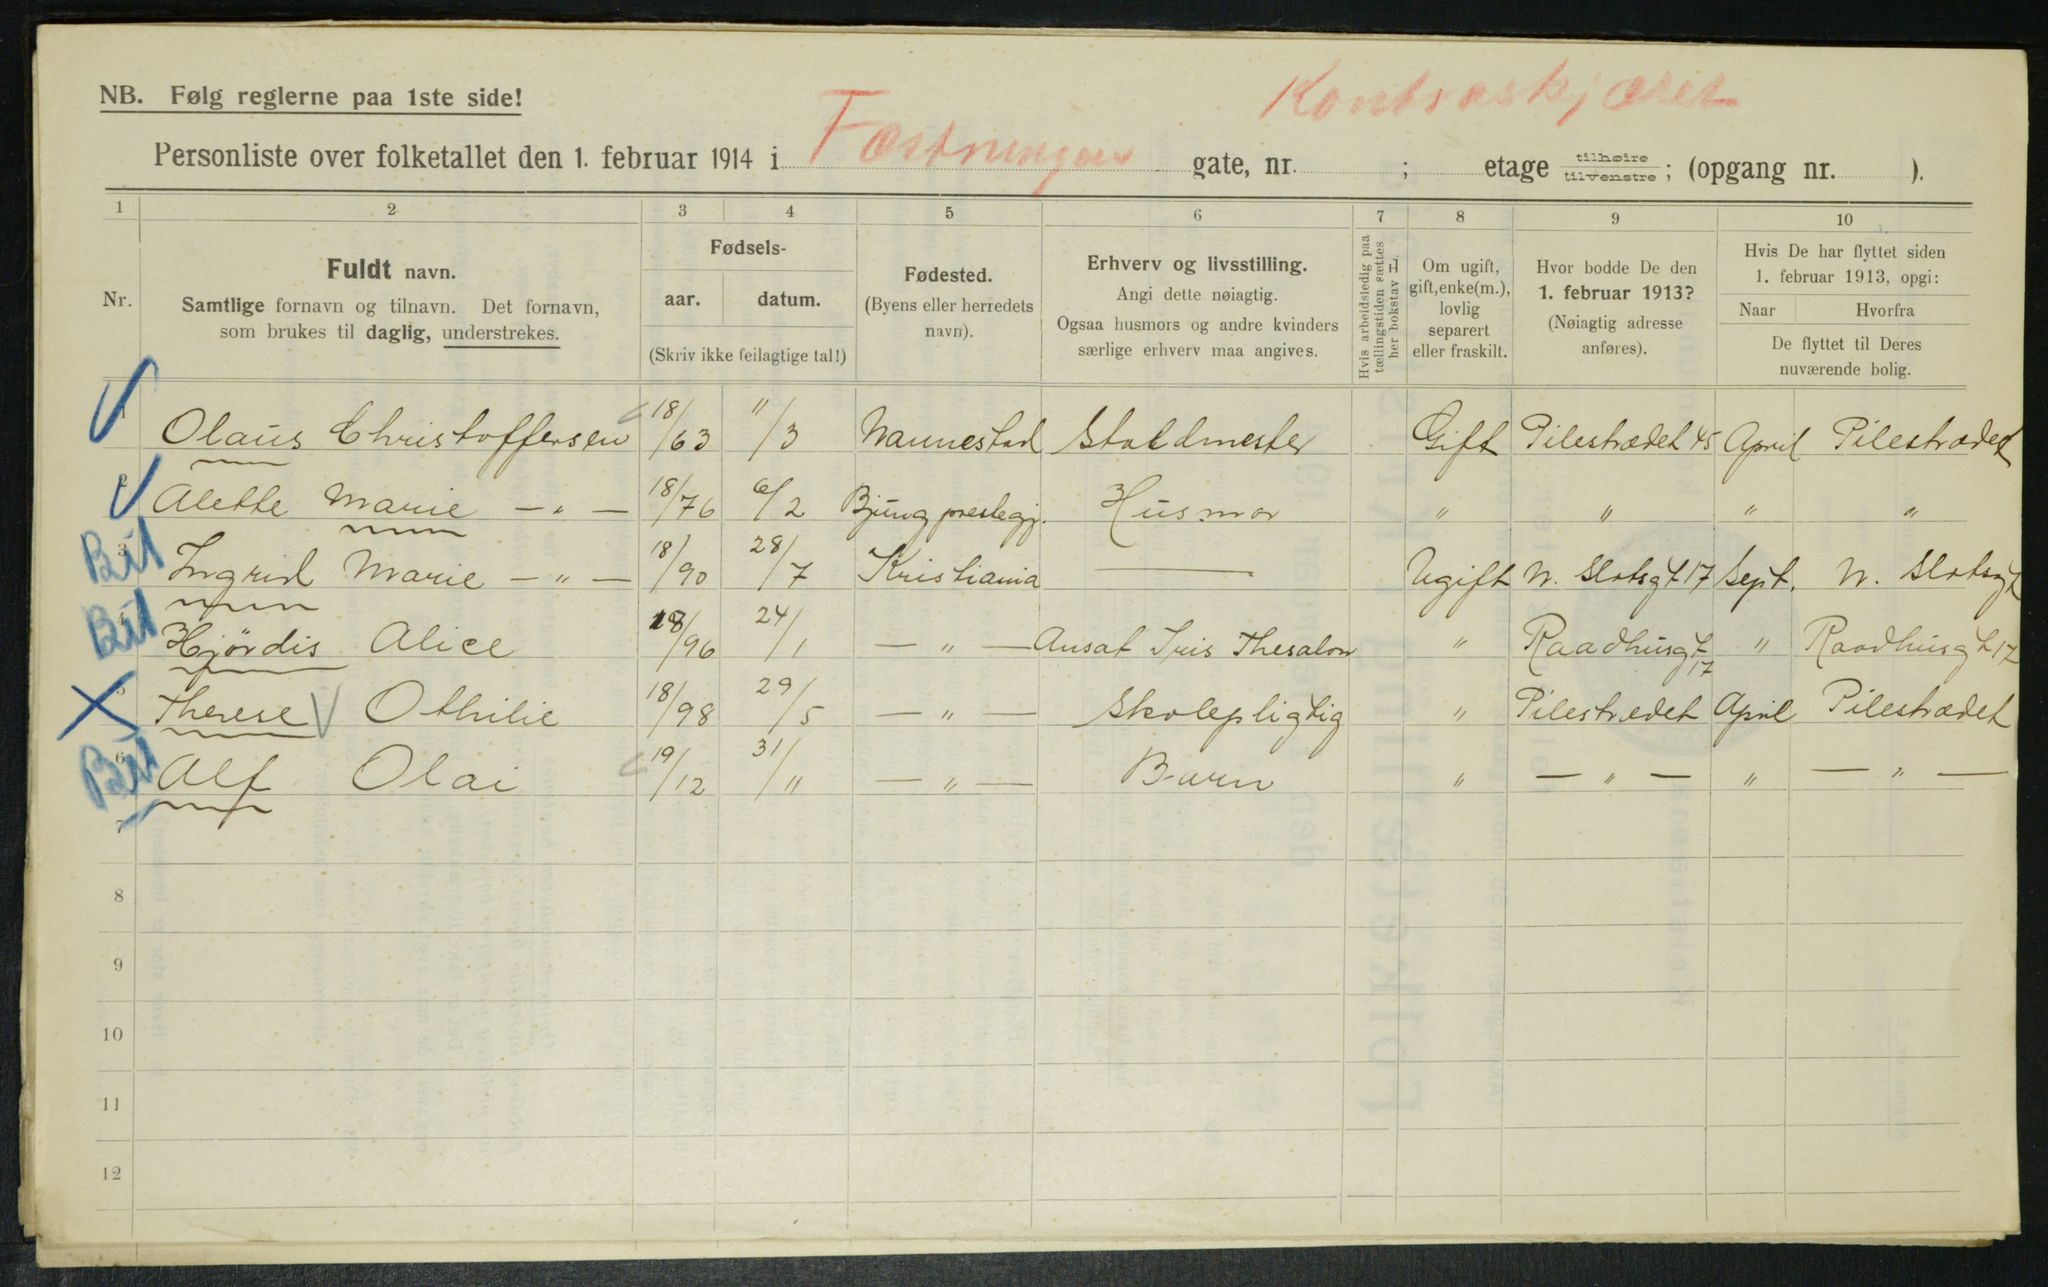 NB. Følg reglerne paa 1ste side!
Kontraskjæret
Personliste over folketallet den 1. februar 1914 i Fæstningen gate, nr. ; etage tilhøire tilvenstre ; (opgang nr. ).
1 2 3 4 5 6 7 8 9 10
Nr.
Fuldt navn.
Samtlige fornavn og tilnavn. Det fornavn,
som brukes til daglig, understrekes.
Fødsels-
aar. datum.
(Skriv ikke feilagtige tal!)
Fødested.
(Byens eller herredets
navn).
Erhverv og livsstilling.
Angi dette nøiagtig.
Ogsaa husmors og andre kvinders
særlige erhverv maa angives.
Hvis arbeidsledig paa
tællingstiden sættes
her bokstav L.
Om ugift,
gift, enke(m.),
lovlig
separert
eller fraskilt.
Hvor bodde De den
1. februar 1913?
(Nøiagtig adresse
anføres).
Hvis De har flyttet siden
1. februar 1913, opgi:
Naar Hvorfra
De flyttet til Deres
nuværende bolig.
1 Olaus Christoffersen 18/63 11/3 Nannestad Staldmester Gift Pilestrædet 45 April Pilestrædet
2 Alette Marie — „ — 18/76 6/2 Bjung prestegj. Husmor „ „ „ „
Bil 3 Ingrid Marie — „ — 18/90 28/7 Kristiania —— Ugift N. Slotsgt 17 Sept. N. Slotsgt
Bil 4 Hjördis Alice 18/96 24/1 — „ — Ansat Iris Thesalon „ Raadhusgt 17 „ Raadhusgt 17
5 Therese Othilie 18/98 29/5 — „ — Skolepligtig „ Pilestrædet April Pilestrædet
Bil 6 Alf Olai 19/12 31/11 — „ — Barn „ — „ — „ — „ —
7
8
9
10
11
12